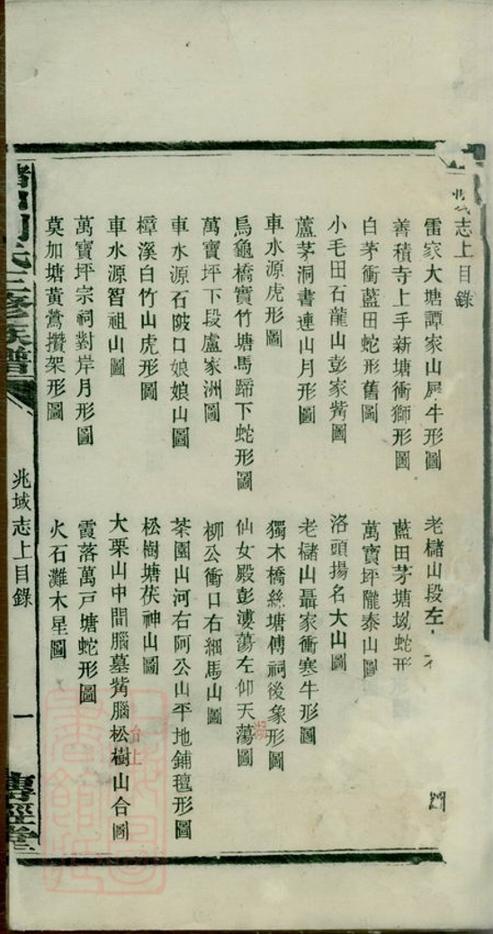 志上目錄
雷家大塘譚家山犀牛形圖
老櫧山段左
善積寺上手新塘衝獅形圖
藍田茅塘坳蛇形
白茅衝藍田蛇形舊圖
萬寶坪隴泰山圖
小毛田石龍山彭家嘴圖
洛頭揚名大山圖
蘆茅洞書連山月形圖
老櫧山聶家衝寒牛形圖
車水源虎形圖
獨木橋絲塘傅祠後象形圖
烏龜橋實竹塘馬蹄下蛇形圖
仙女殿彭漊蕩左仰天蕩圖
萬寶坪下段盧家洲圖
柳公衝口右綑馬山圖
車水源石陂口娘娘山圖
茶園山河右阿公山平地鋪氊形圖
樟溪白竹山虎形圖
松樹塘茯神山圖
車水源智祖山圖
大栗山中間腦墓嘴腦松樹山合圖
台上
萬寶坪宗祠對岸月形圖
霞落萬戸塘蛇形圖
莫加塘黃鶯攢架形圖
火石灘木星圖
劉氏三修族譜
兆域志上目錄
一
傳經堂